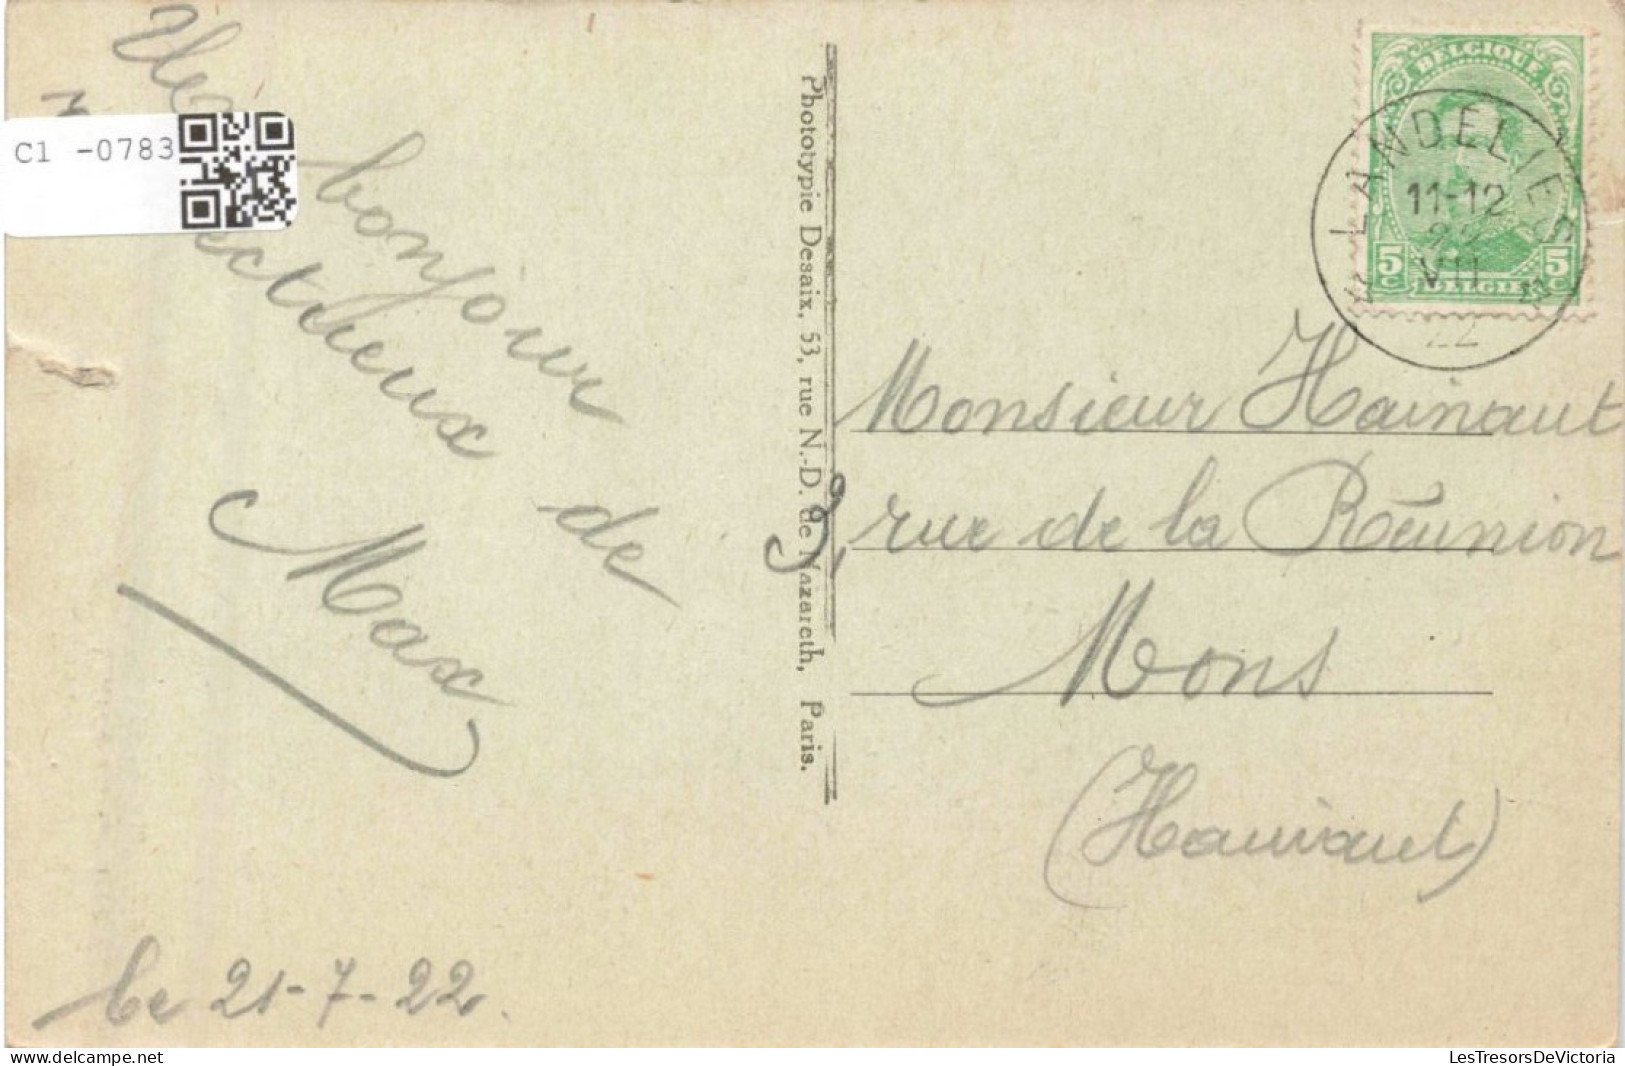 C1 -0783
bonjour
ectueux de
Max
le 21-7-22.
Phototypie Desaix, 53, rue N.-D. de Nazareth, Paris.
BELGIQUE
5c BELGIE 5c
LANDELIES
11-12
22
VII
22
Monsieur Hainaut
9, rue de la Réunion
Mons
(Hainaut)
LesTresorsDeVictoria
delcampe.net